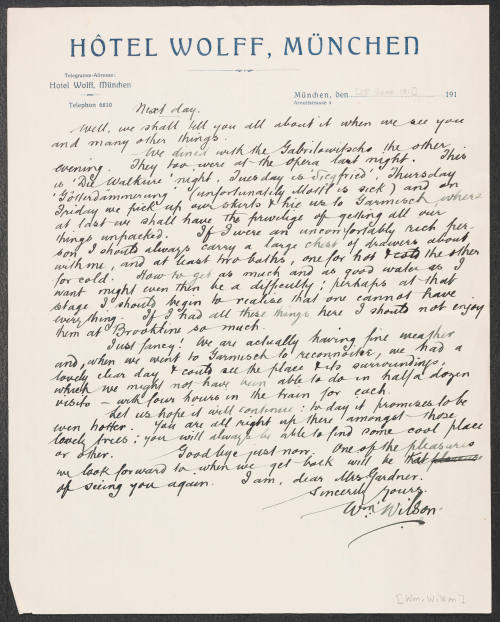 HÔTEL WOLFF, MÜNCHEN
Telegramm-Adresse:
Hotel Wolff, München
Telephon 6610
München, den 191
Arnulfstrasse 4
Next day.
Well, we shall tell you all about it when we see you
and many other things.
We dined with the Gabrilowitschs the other
evening. They too were at the opera last night. This
is 'Die Walküre' night, Tuesday is 'Siegfried', Thursday
'Götterdämmerung' (unfortunately Mottl is sick) and on
Friday we pick up our skirts & hie us to Garmisch where
at last we shall have the privilege of getting all our
things unpacked. If I were an uncomfortably rich per-
son I should always carry a large chest of drawers about
with me, and at least two baths, one for hot & the other
for cold. How to get as much and as good water as I
want might even then be a difficulty; perhaps at that
stage I should begin to realise that one cannot have
everything. If I had all these things here I should not enjoy
them at Brookline so much.
Just fancy! We are actually having fine weather
and, when we went to Garmisch to reconnoitre, we had a
lovely clear day & could see the place & its surroundings,
which we might not have been able to do in half a dozen
visits – with four hours in the train for each.
Let us hope it will continue: to day it promises to be
even hotter. You are all right up there amongst those
lovely trees; you will always be able to find some cool place
or other. Goodbye just now. One of the pleasures
we look forward to when we get back will be that
of seeing you again. I am, dear Mrs Gardner,
Sincerely Yours
Wm. Wilson.
[Wm. Wilson]